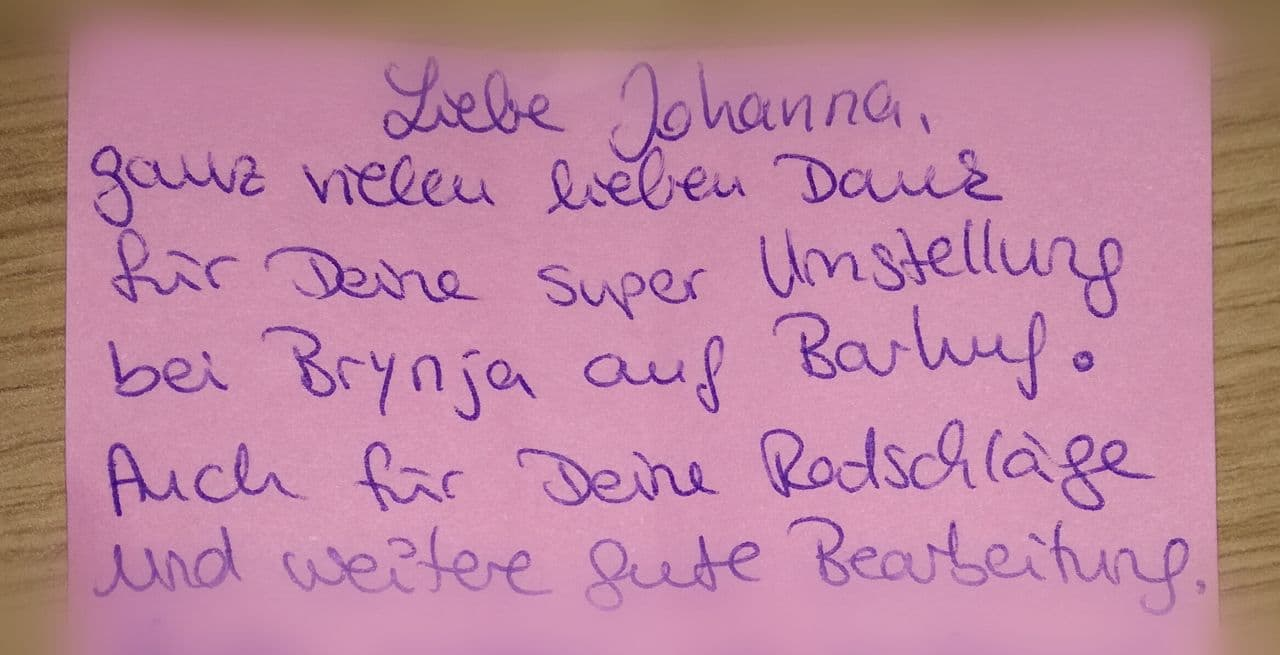 Liebe Johanna,
ganz vielen lieben Dank
für Deine super Umstellung
bei Brynja auf Barhuf.
Auch für Deine Radschläge
und weitere gute Bearbeitung.